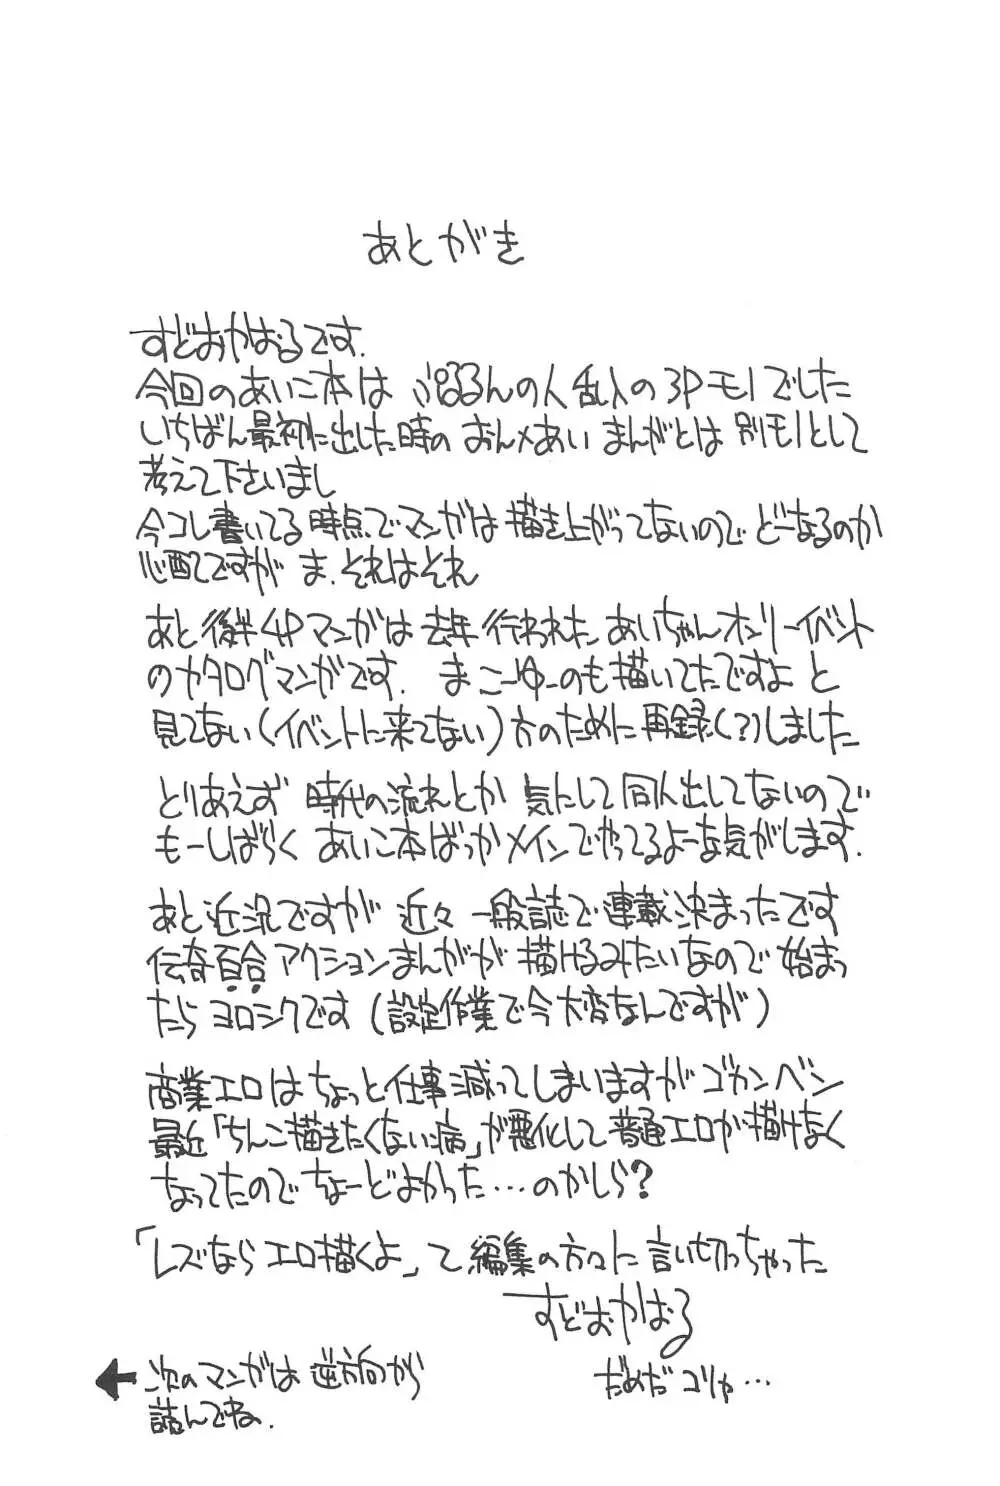 あとがき
すどおやおるです.
今回のあいこ本は ぷるるんの人乱入の3Pモノでした
いちばん最初に出した時の おんメあい まんがとは 別モノとして
考えて下さいまし
今コレ書いてる時点でマンガは描き上がってないので どーなるのか
心配ですが ま、それはそれ
あと後半4Pマンガは去年行われた あいちゃんオンリーイベント
のカタログマンガです. まこーゆーのも描いてたですよ と
見てない(イベントに来てない)方のために再録(?)しました
とりあえず 時代の流れとか 気にして同人出してないので
もーしばらく あいこ本ばっかメインでやってるよーな気がします.
あと近況ですが 近々 一般誌で連載決まったです
伝奇百合アクションまんがが 描けるみたいなので 始まっ
たら ヨロシクです (設定作業で今大変なんですが)
商業エロはちょっと仕事減ってしまいますがゴカンベン
最近「ちんこ描きたくない病」が悪化して普通エロが描けなく
なってたので ちょーどよかった…のかしら?
「レズなら エロ描くよ」て編集の方々に言い切っちゃった
すどおやおる
だめだ コリャ…
← 次のマンガは 逆方向から
読んでね.